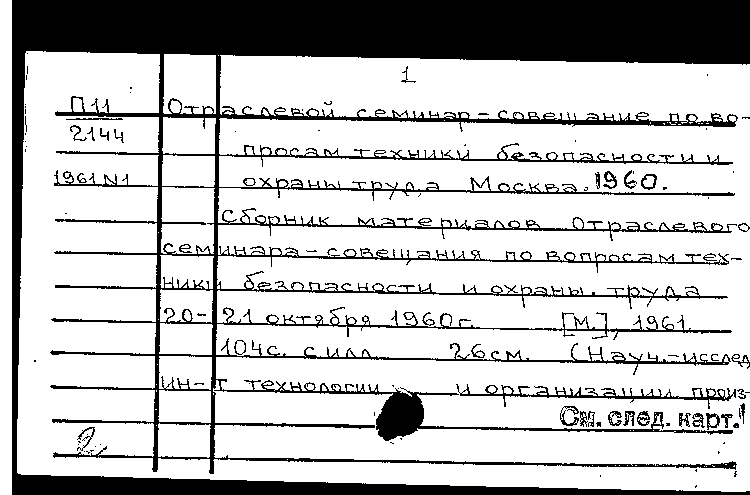 1
П11 Отраслевой семинар-совещание по во-
2144
просам техники безопасности и
1961 N1 охраны труда Москва. 1960.
Сборник материалов Отраслевого
семинара-совещания по вопросам тех-
ники безопасности и охраны труда
20-21 октября 1960г. [М.], 1961.
104с. с илл. 26см. (Науч.-исслед
ин-т технологии и организации произ-
См. след. карт.
2